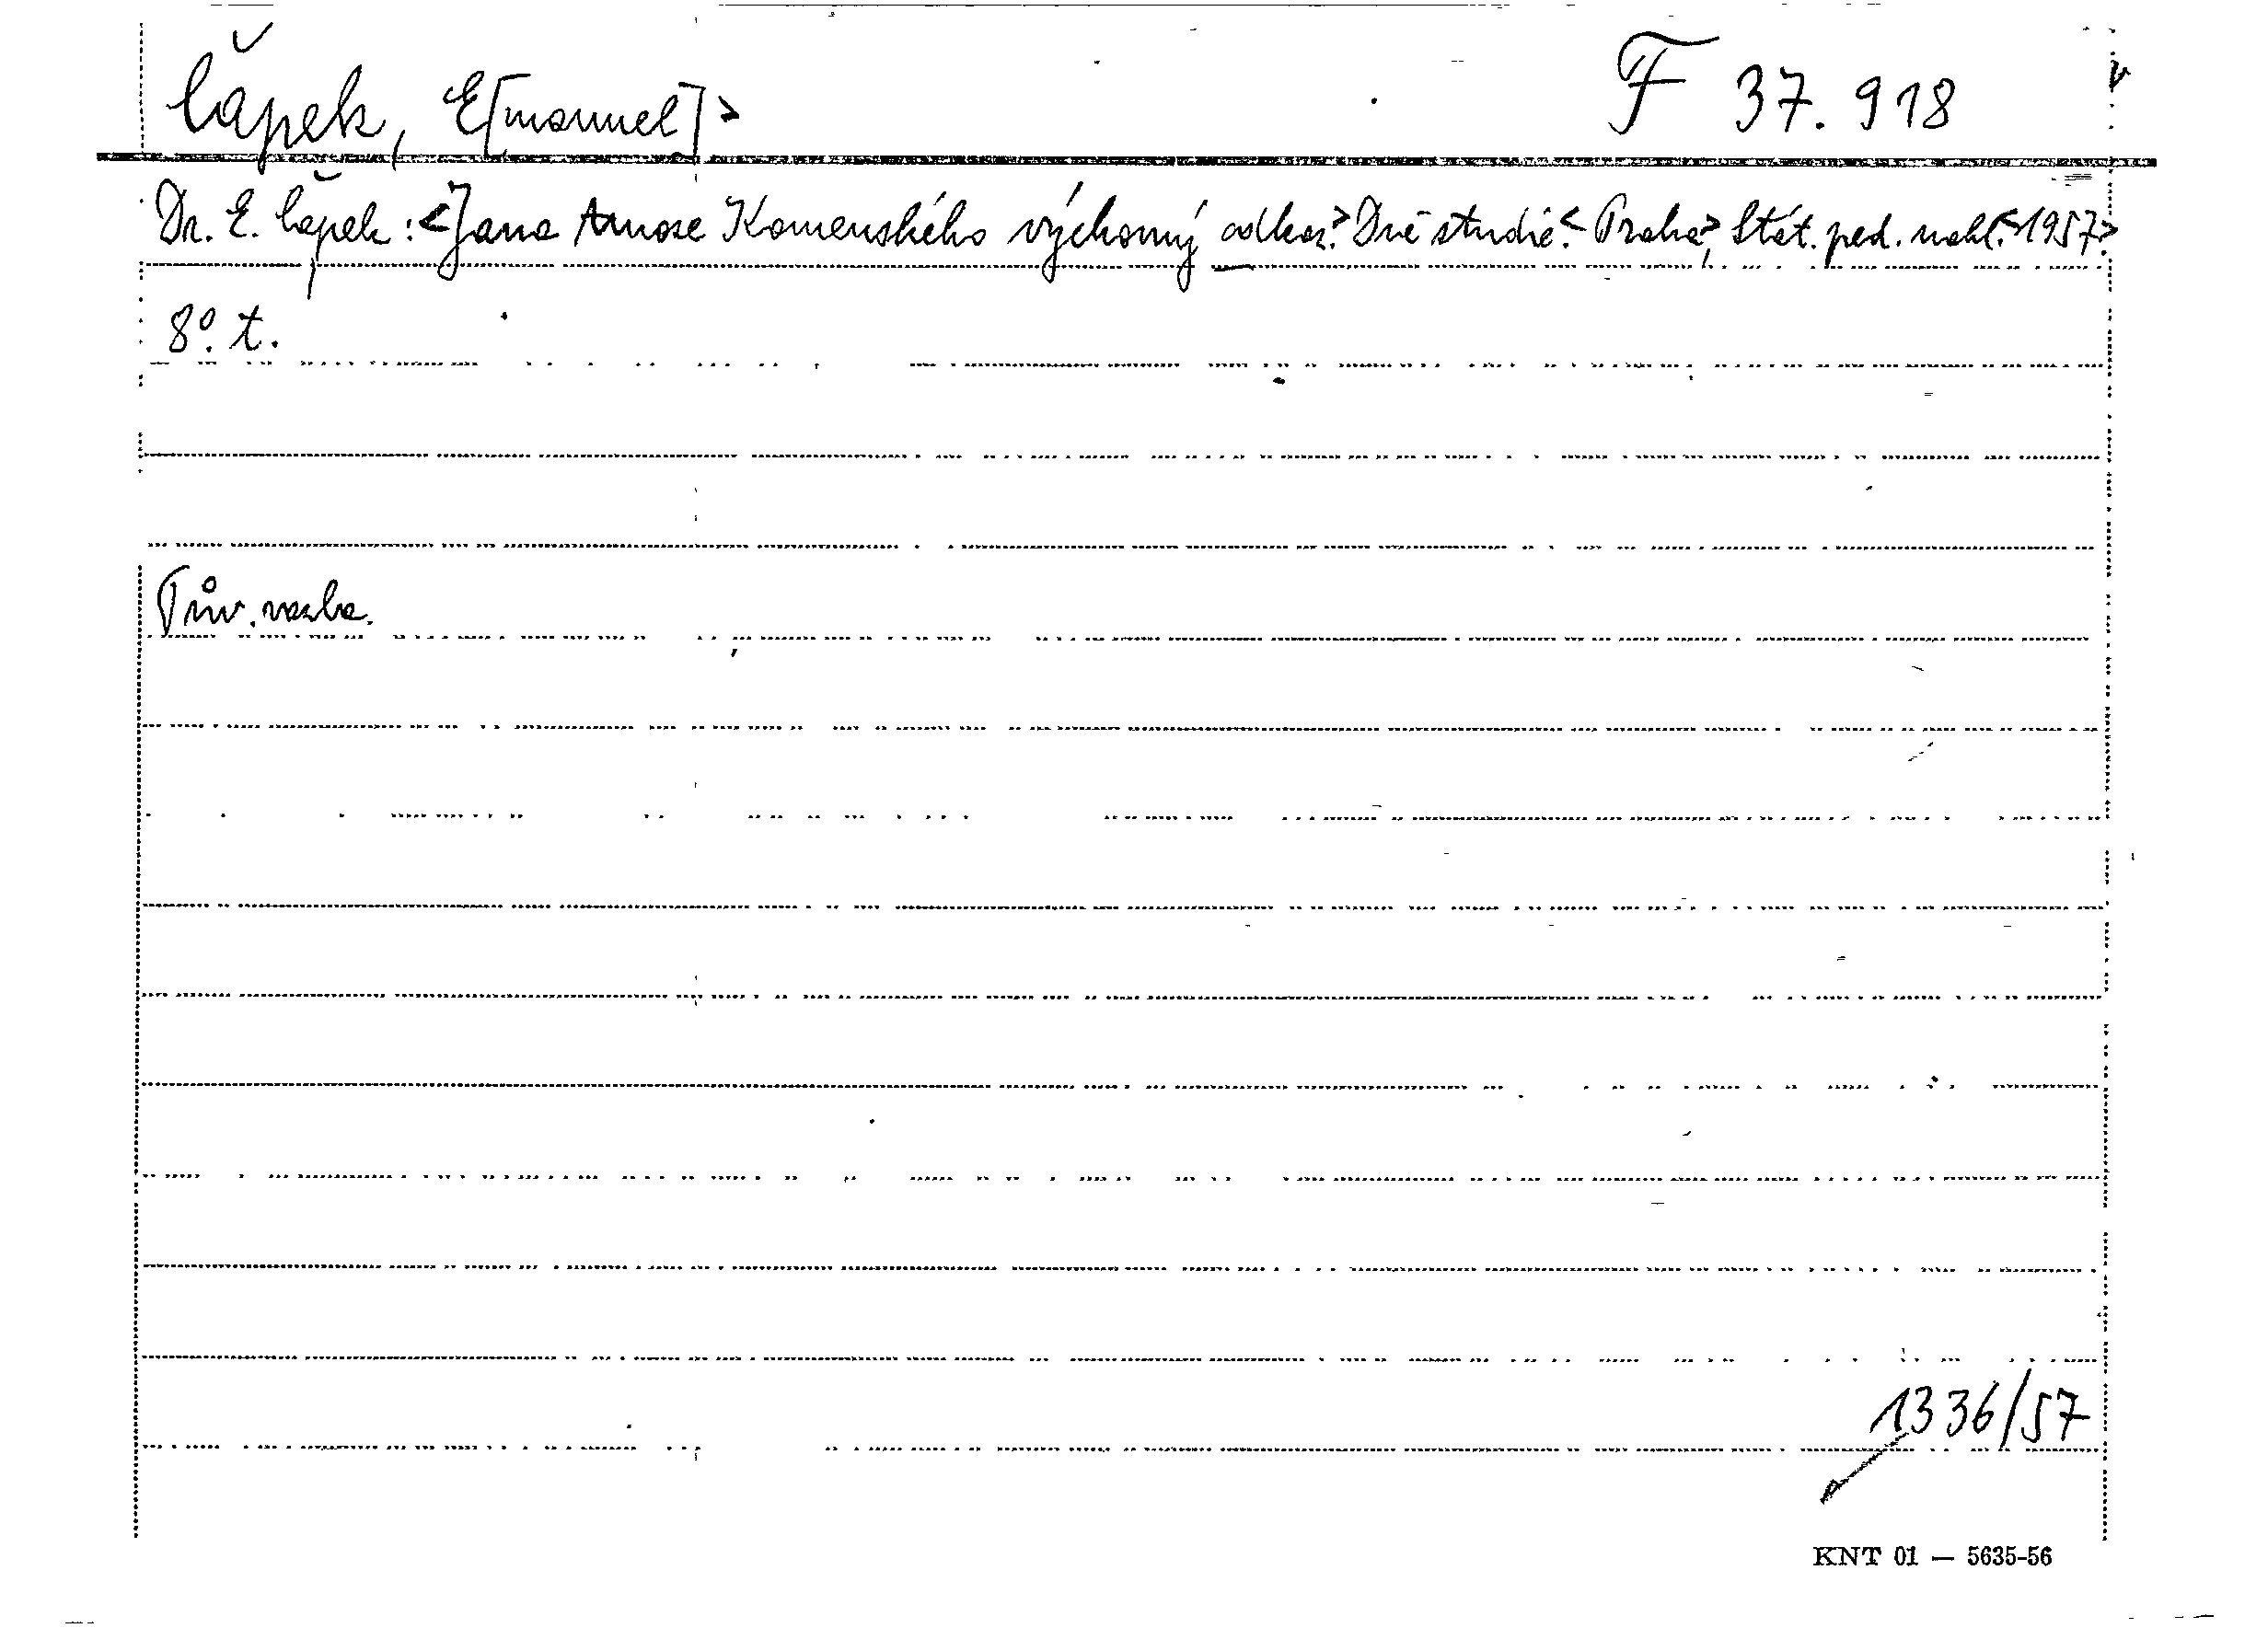 Čapek, E[manuel]> F 37.918
Dr. E. Čapek: <Jana Amose Komenského výchovný odkaz.> Dvě studie.< Praha>, Stát. ped. nakl.<1957.>
8° t.
Pův. vazba.
1336/57
KNT 01 — 5635-56